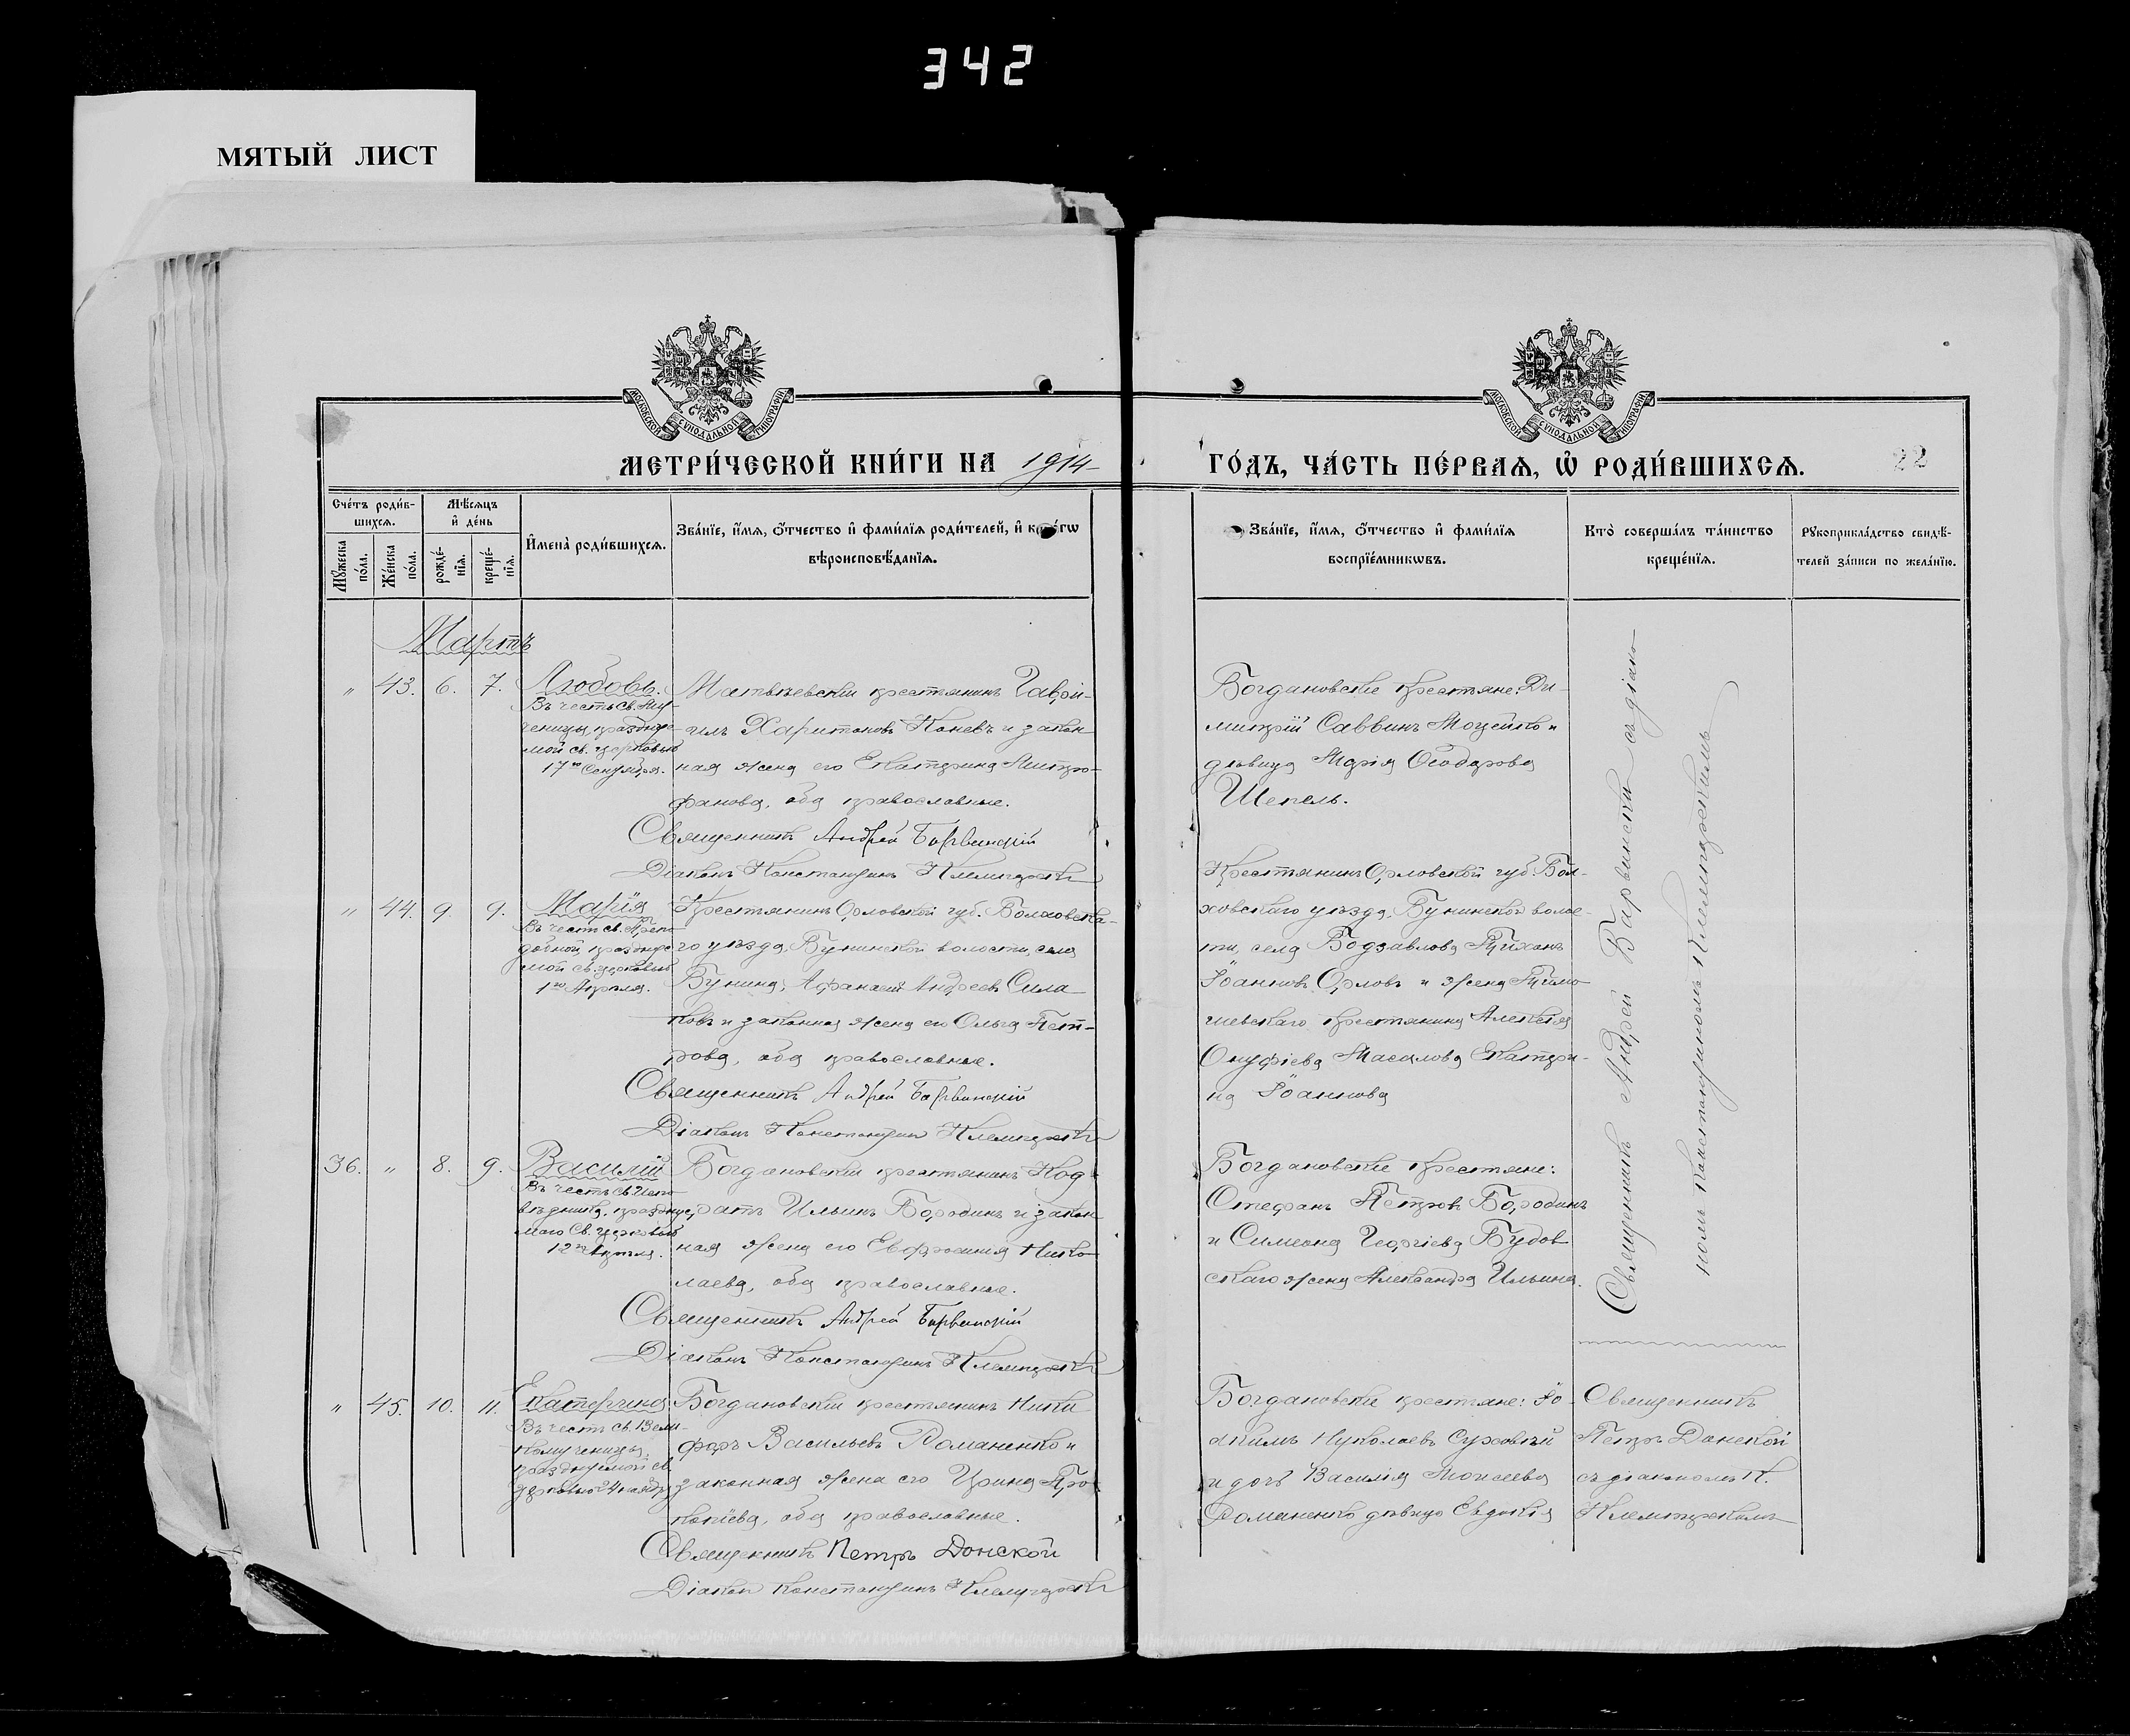 342
МЯТЫЙ ЛИСТ
МОСКОВСКОЙ СѴНОДАЛЬНОЙ ТИПОГРАФІИ
МОСКОВСКОЙ СѴНОДАЛЬНОЙ ТИПОГРАФІИ
МЕТРИ́ЧЕСКОЙ КНИ́ГИ НА 1914
ГО́ДЪ, ЧА́СТЬ ПЕ́РВАѦ, Ѡ҆ РОДИ́ВШИХСѦ.
22
Сче́тъ роди́в-
шихсѧ.
Мꙋ́жеска по́ла.
Же́нска по́ла.
Мѣ́сѧцъ
и҆ де́нь
рожде́-
нїѧ.
креще́-
нїѧ.
И҆мена̀ роди́вшихсѧ.
Зва́нїе, и҆́мѧ, ѻ҆́тчество и҆ фами́лїѧ роди́телей, и҆ како́гѡ
вѣроисповѣ́данїѧ.
Зва́нїе, и҆́мѧ, ѻ҆́тчество и҆ фами́лїѧ
воспрїе́мникѡвъ.
Кто̀ соверша́лъ та́инство
креще́нїѧ.
Рꙋкоприкла́дство свидѣ́-
телей за́писи по жела́нїю.
Мартъ
" 43. 6. 7.
Любовь.
Въ честь св. Му-
ченицы, праздну-
мой св. церковью
17го Сентября.
Матвѣевскій крестьянинъ Гаврі-
илъ Харитоновъ Каневъ и закон
ная жена его Екатерина Митро-
фанова, оба православные.
Священникъ Андрей Барвинскій
Діаконъ Константинъ
Богдановскіе крестьяне: Ди-
митрій Саввинъ Моцейко и
дѣвица Марія Ѳеодорова
Шепель.
" 44. 9. 9.
Марія
Въ честь св. Препо
добной, праздуе
мой св. церковью
1го Апрѣля.
Крестьянинъ Орловской губ. Болховска-
го уѣзда, Бунинской волости, села
Бунина, Афанасій Андреевъ Сила
ковъ и законная жена его Ольга Пет-
рова, оба православные.
Священникъ Андрей Барвинскій
Діаконъ Константинъ
Крестьянинъ Орловской губ. Бол-
ховскаго уѣзда, Бунинской волос-
ти, села Тихонъ
Іоанновъ Орловъ и жена
шевскаго крестьянина Алексія
Онуфріева Масалова Екатери-
на Іоаннова
36. " 8. 9.
Василій
Въ честь св. Испо
вѣдника, праздуе
маго Св. церковью
12го Апрѣля.
Богдановскій крестьянинъ Код-
ратъ Ильинъ Бородинъ и закон
ная жена его Евфросинія Нико
лаева, оба православные.
Священникъ Андрей Барвинскій
Діаконъ Константинъ
Богдановскіе крестьяне:
Стефанъ Петровъ Бородинъ
и Симеона Георгіева Будов
скаго жена Александра Ильина.
Священникъ Андрей Барвинскій съ діако
номъ Константиномъ
" 45. 10. 11.
Екатерина
Въ честь св. Вели
комученицы,
празднуемой св.
церковью 24 ноября
Богдановскій крестьянинъ Ники
форъ Васильевъ Романенко и
законная жена его Ирина Про
копіева, оба православные.
Священникъ Петръ Донской
Діаконъ Константинъ
Богдановскіе крестьяне: Іо-
акимъ Николаевъ
и дочь Василія Моисеева
Романенко дѣвица Евдокія
Священникъ
Петръ Донской
съ діакономъ К.